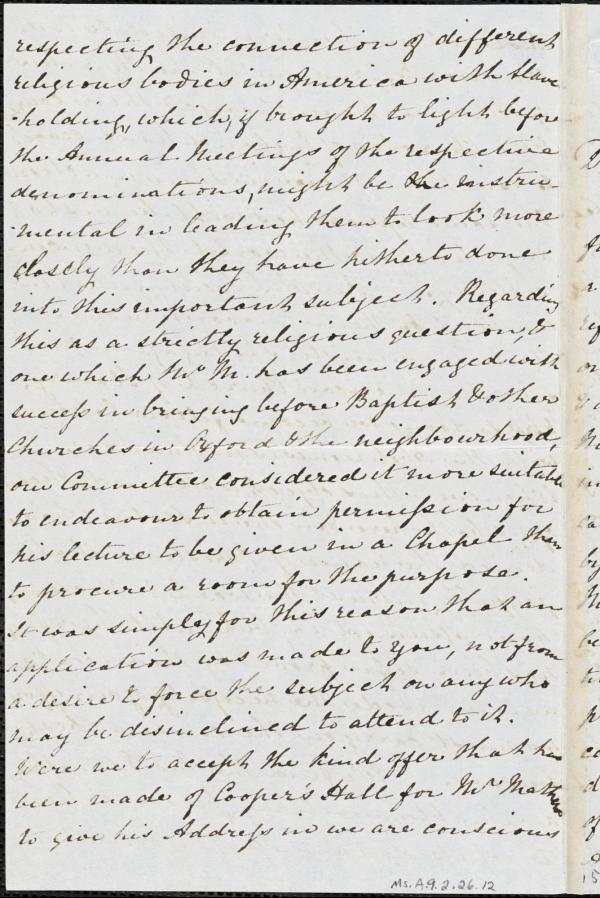 respecting the connection of different
religious bodies in America with Slave
-holding, which, if brought to light before
the Annual Meetings of the respective
denominations, might be the instru-
-mental in leading them to look more
closely than they have hitherto done
into this important subject. Regarding
this as a strictly religious question, &
one which Mr M. has been engaged with
success in bringing before Baptist & other
Churches in Oxford & the neighbourhood,
our Committee considered it more suitable
to endeavour to obtain permission for
his lecture to be given in a Chapel than
to procure a room for the purpose.
It was simply for this reason that an
application was made to you, not from
a desire to force the subject on any who
may be disinclined to attend to it.
Were we to accept the kind offer that has
been made of Cooper's Hall for Mr Mathews
to give his Address in we are conscious
Ms.A.9.2.26.12